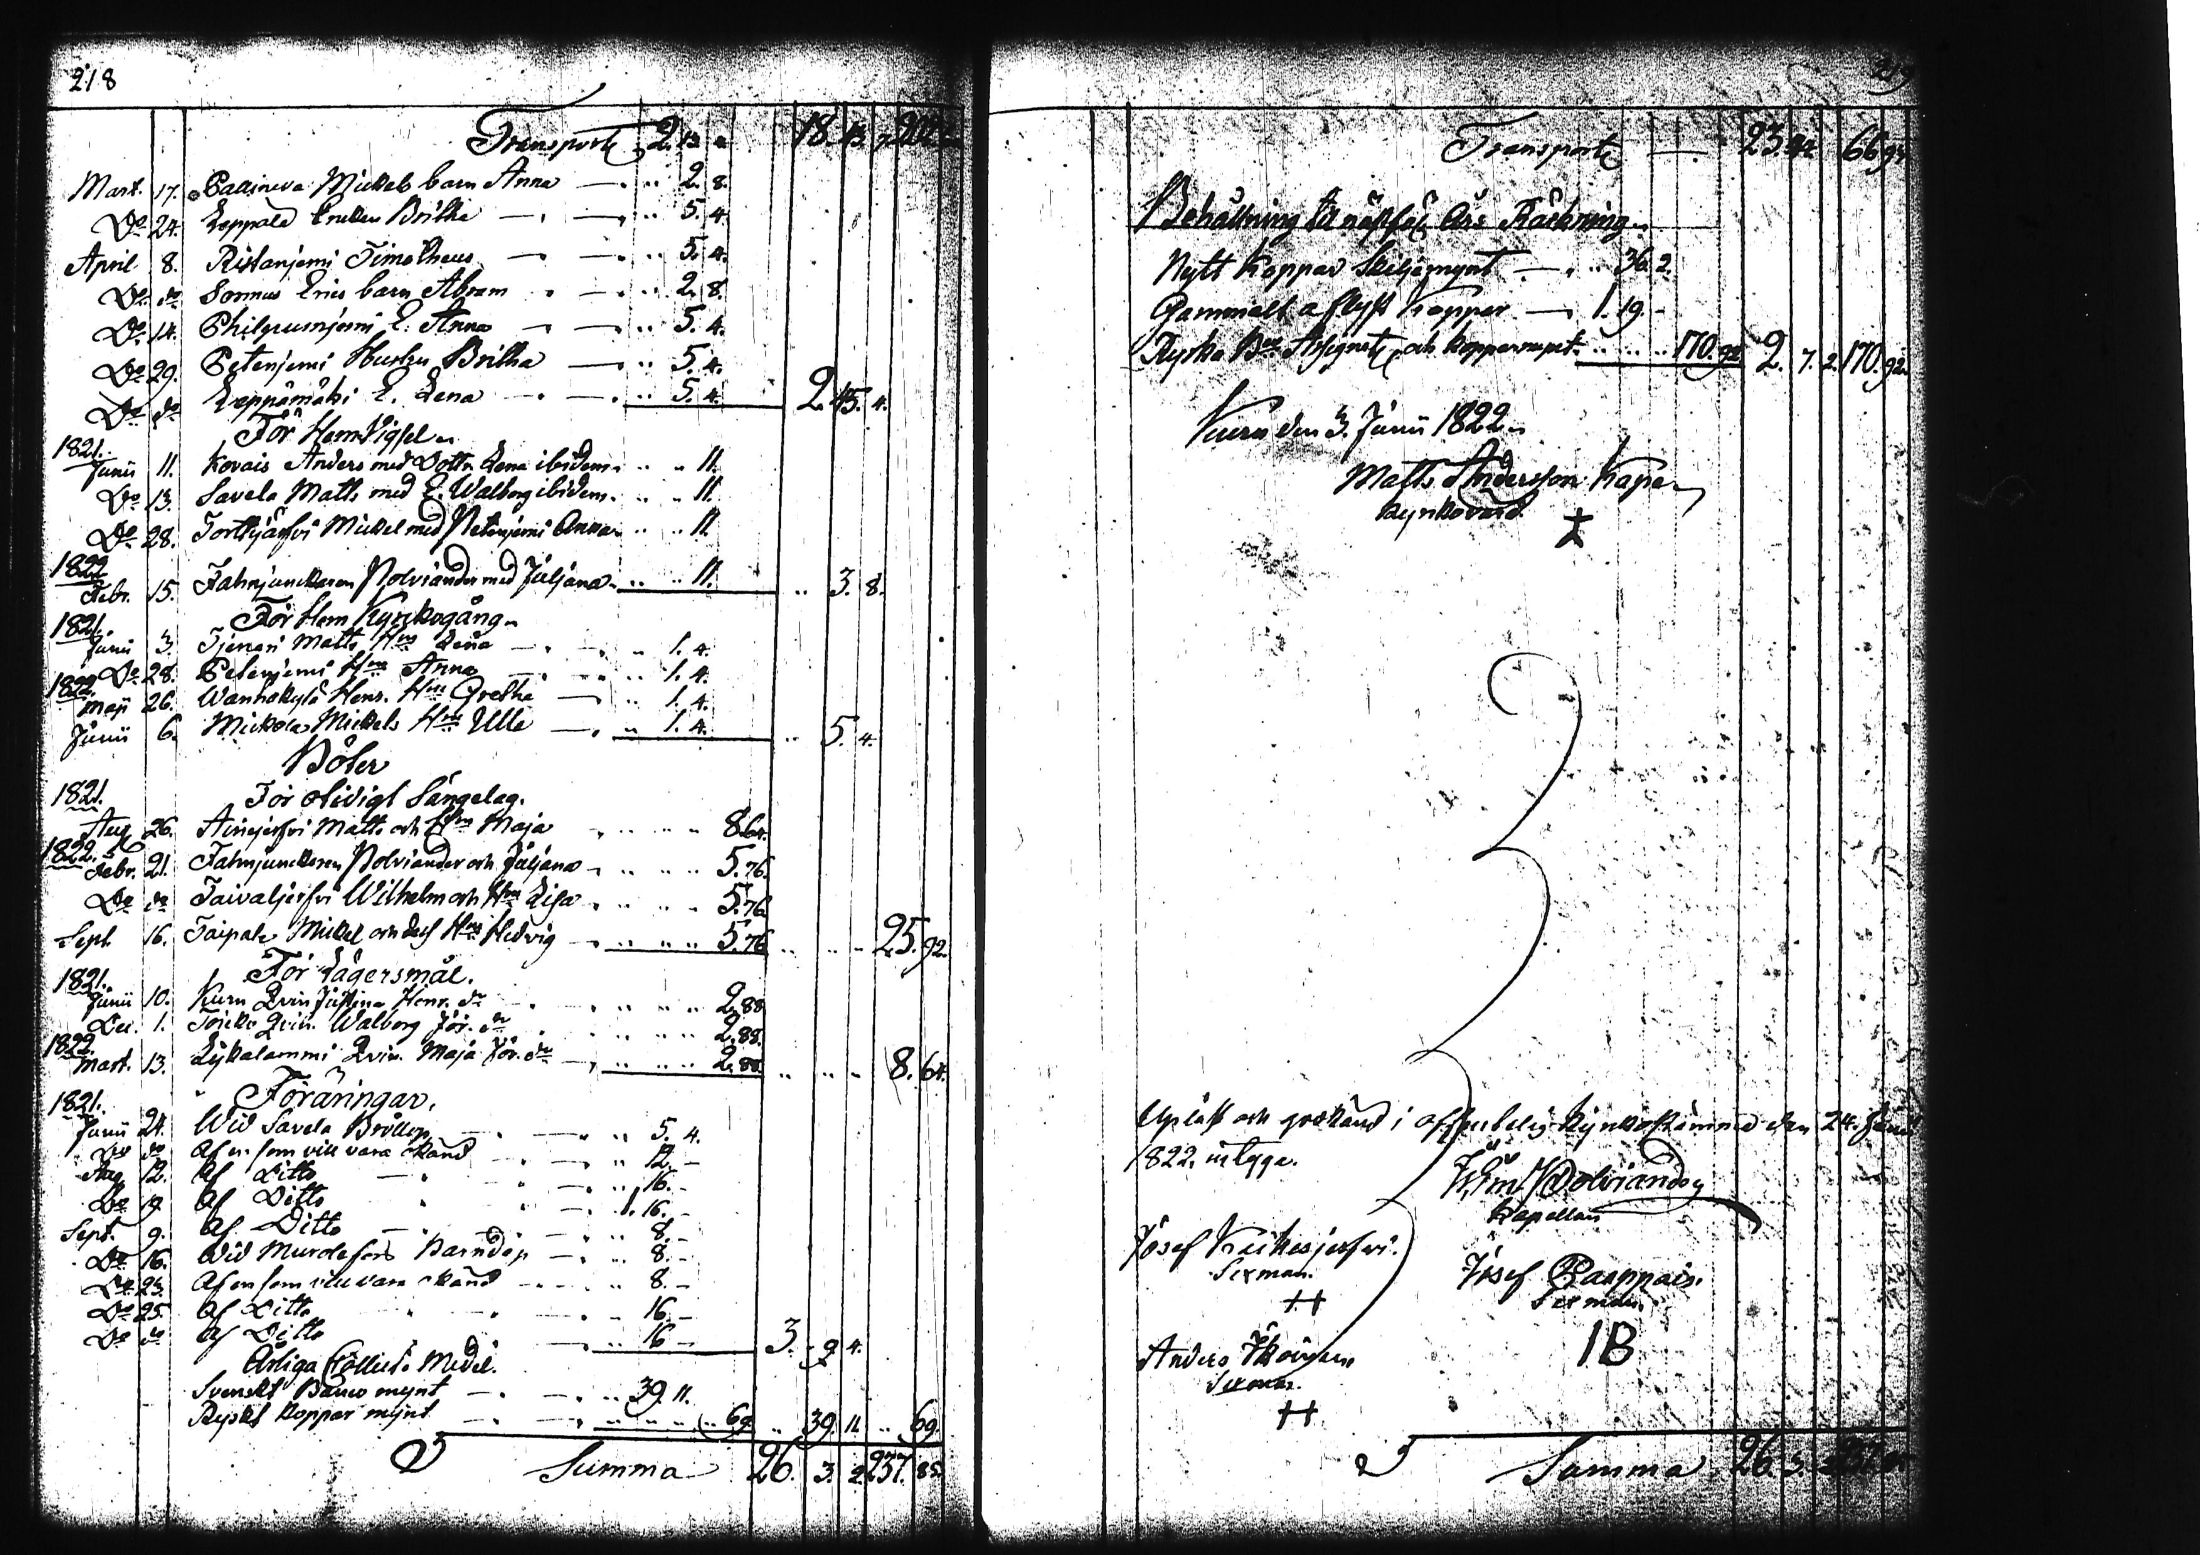 218
Transport 2. 13. 18. 13. 7. 202.
Mart. 17. Mickels barn Anna 2. 8.
Do 24. Leppälä Enkan Britha 5. 4.
April 8. Ristanjemi Timotheus 5. 4.
Do do Sormus Erics barn Abram 2. 8.
Do 14. E. Anna 5. 4.
Do 29. Petenjemi Hustru Britha 5. 4.
Do do Leppämäki E. Lena 5. 4. 2. 45. 4.
För Hem Vigsel
1821.
Junii 11. Kovais Anders med Dottr Lena ibidem 11.
Do 13. Savela Matts med E. Walborg ibidem 11.
Do 28. Mickel med Petenjemi Anna 11.
1822
Febr. 15. Fahnjunckaren Polviander med Juljana 11. 3. 8.
För Hem Kyrkogång
1821.
Junii 3. Matts Hru Lena 1. 4.
Do 28. Petenjemi Hru Anna 1. 4.
1822.
Maji 26. Wanhakylä Henr. Hru Gretha 1. 4.
Junii 6. Mickola Mickels Hru Ulla 1. 4. 5. 4.
Böter
1821. För otidigt Sängelag.
Aug 26. Matts och Hru Maja 8.64.
1822.
Febr. 21. Fahnjunckaren Polviander och Juljana 5.76.
Do do Taivaljerfvi Wilhelm och Hru Lisa 5.76.
Sept. 16. Taipale Mickel och dess Hru Hedvig 5.76 25.92.
För Lägersmål.
1821.
Junii 10. Kuru Qvin Justina Henr. dr 2.88
Dec. 1. Qvin. Walborg Jör. dr 2.88.
1822.
Mart. 13. Lykalammi Qvin. Maja Jör. dr 2.88. 8.64.
Föräringar.
1821.
Junii 24. Wid Savela Bröllop 5. 4.
Do do Af en som vill vara okänd 12. -
Aug 12. Af Ditto 16. -
Do 19. Af Ditto 1. 16. -
Sept. 9. Af Ditto 8. -
Do 16. Wid Barndop 8. -
Do 23. Af en som vill vara okänd 8. -
Do 25. Af Ditto 16. -
Do do Af Ditto 16 - 3. 9. 4.
Årliga Collect Medel.
Svenskt Banco mynt 39. 11.
Ryskt koppar mynt 69. 39. 11. 69.
Summa 26. 3. 2. 237. 85.
219
Transport 23. 44. 66 94.
Behållning til nästföl. års Räkning
Nytt Koppar Skiljemynt 36. 2.
Gammalt aflyst Koppar 1. 19. -
Ryska Bco Assignat. och kopparmynt 170. 92 2. 7. 2. 170. 92.
Kuru den 3. Junii 1822.
Matts Andersson Kapè
kyrkovärd
Upläst och godkänd i offentelig kyrkostämma den 24. Junii
1822. intyga.
Wilm. Polviander
Kapellan
Josef Keihesjerfvi.
Sexman.
Josef Paappais.
Sexman.
IB
Anders
Sexman.
Summa 26. 3. 2. 237. 85